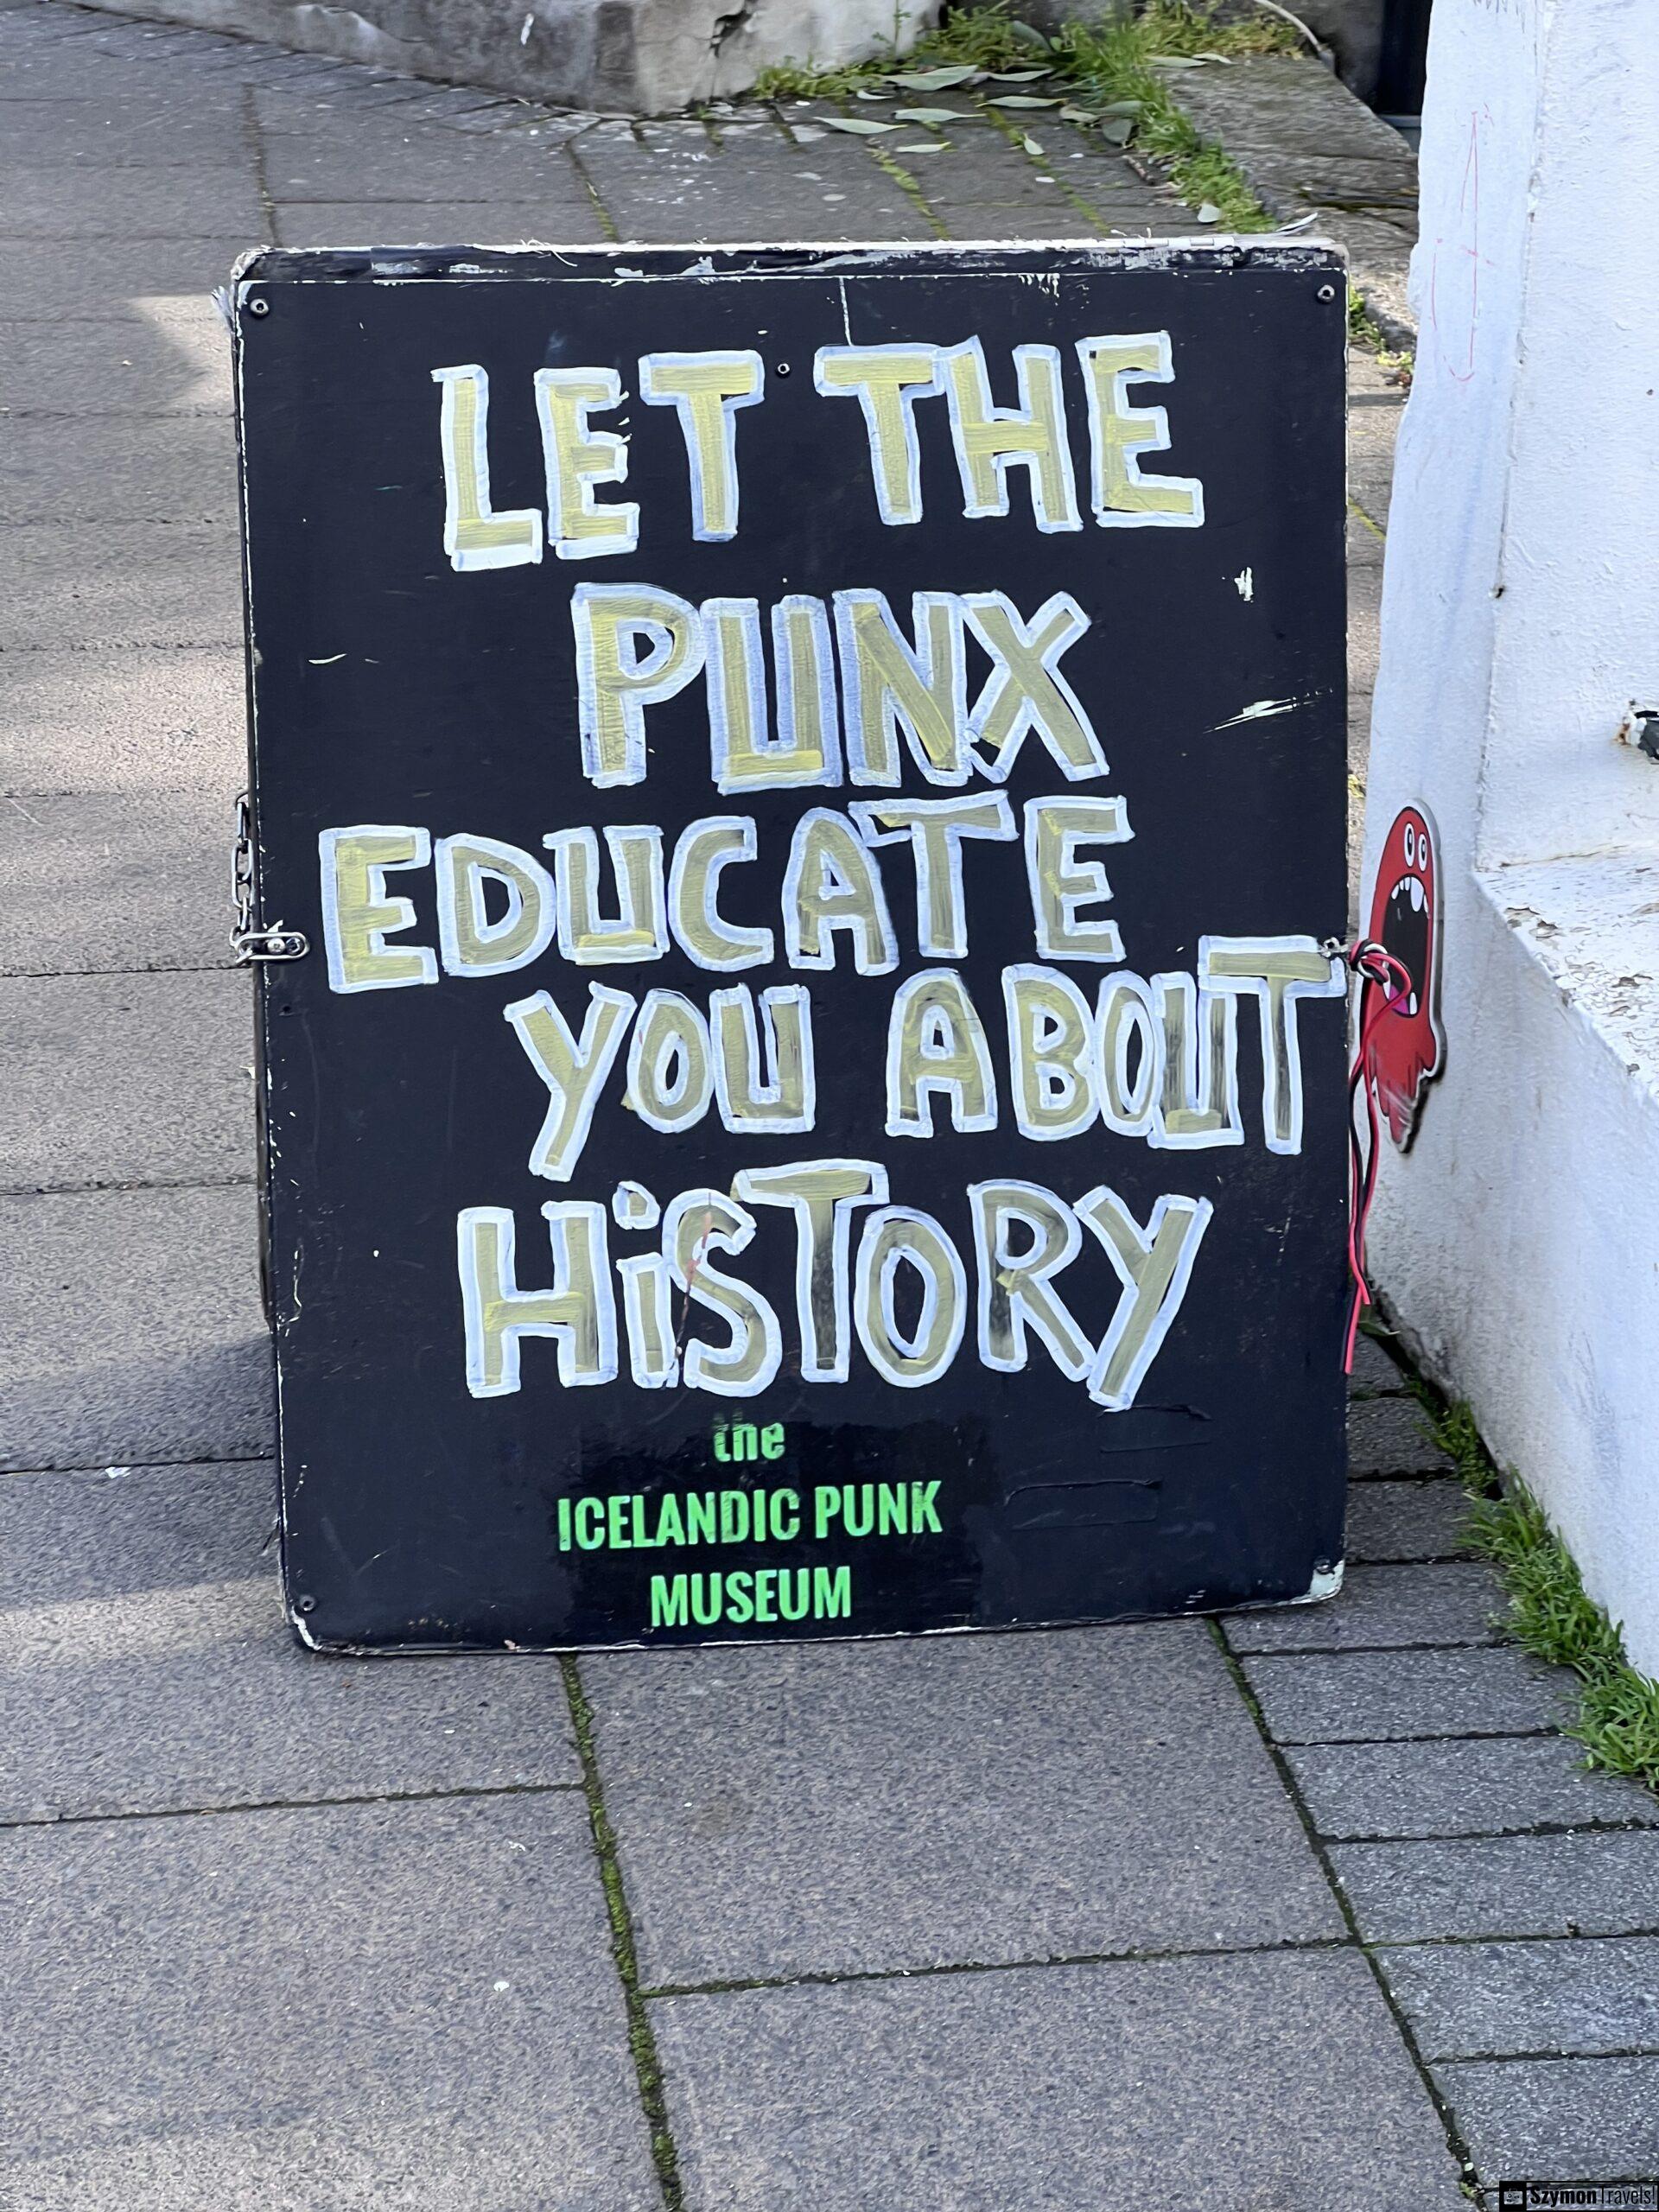 LET THE
PUNX
EDUCATE
YOU ABOUT
HiSTORY
the
ICELANDIC PUNK
MUSEUM
SzymonTravels!